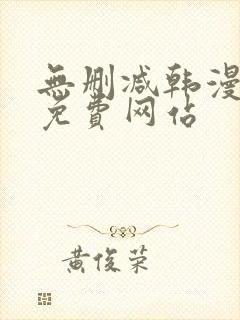 無删减韩漫
免費网佔
黄俊荣